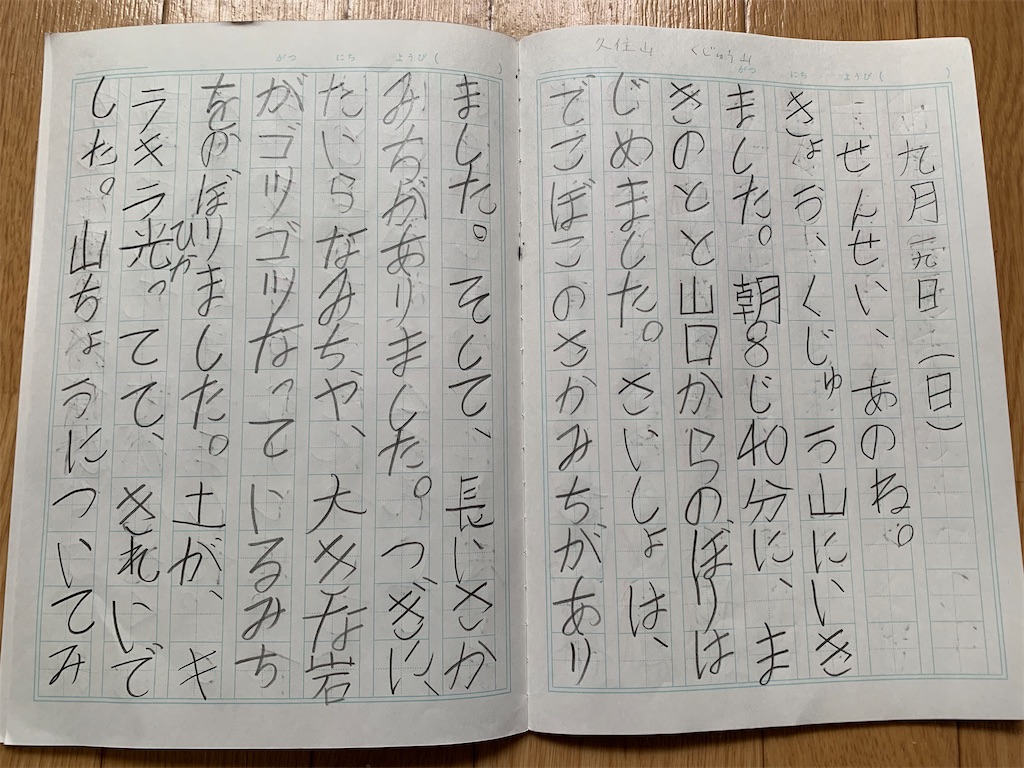 久住山 くじゅう山
がつ にち ようび( )
九月二九日(日)
せんせい、あのね。
きょう、くじゅう山にいき
ました。朝8じ40分に、ま
きのとと山口からのぼりは
じめました。さいしょは、
でこぼこのさかみちがあり
がつ にち ようび( )
ました。そして、長いさか
みちがありました。つぎに、
たいらなみちや、大きな岩
がゴツゴツなっているみち
をのぼりました。土が、キ
ひか
ラキラ光ってて、きれいで
した。山ちょうについてみ